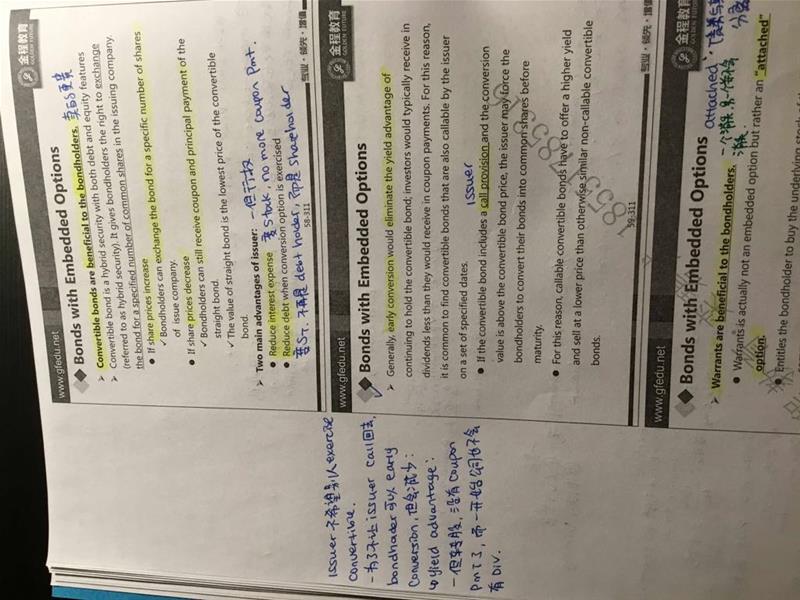 www.gfedu.net
金程教育
GOLDEN FUTURE
Bonds with Embedded Options
Convertible bonds are beneficial to the bondholders.
Convertible bond is a hybrid security with both debt and equity features
(referred to as hybrid security). It gives bondholders the right to exchange
the bond for a specified number of common shares in the issuing company.
If share prices increase
✓ Bondholders can exchange the bond for a specific number of shares
of issue company.
If share prices decrease
✓ Bondholders can still receive coupon and principal payment of the
straight bond.
✓ The value of straight bond is the lowest price of the convertible
bond.
Two main advantages of issuer: 一但行权
Reduce interest expense 变stock, no more coupon pmt.
Reduce debt when conversion option is exercised
变ST. 不再是debt holder, 而是shareholder
58-311
专业·领先·增值
www.gfedu.net
金程教育
GOLDEN FUTURE
Bonds with Embedded Options
Generally, early conversion would eliminate the yield advantage of
continuing to hold the convertible bond; investors would typically receive in
dividends less than they would receive in coupon payments. For this reason,
it is common to find convertible bonds that are also callable by the issuer
on a set of specified dates.
issuer
If the convertible bond includes a call provision and the conversion
value is above the convertible bond price, the issuer may force the
bondholders to convert their bonds into common shares before
maturity.
For this reason, callable convertible bonds have to offer a higher yield
and sell at a lower price than otherwise similar non-callable convertible
bonds.
59-311
专业·领先·增值
issuer不希望别人exercise
convertible.
- 为了不让issuer call回去,
bondholder可以early
conversion, 但会减少:
yield advantage:
一但转股, 没有coupon
pmt了, 而一开始公司也不会
有DIV.
www.gfedu.net
金程教育
Bonds with Embedded Options
attached:
Warrants are beneficial to the bondholders.
Warrants is actually not an embedded option but rather an "attached"
option.
Entitles the bondholder to buy the underlying stock of